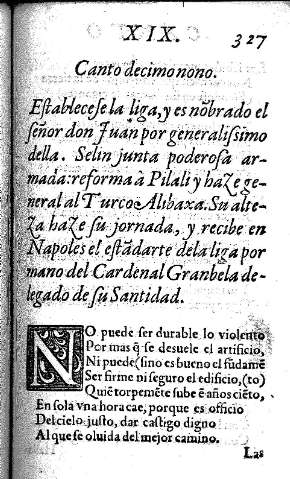 XIX. 327
Canto decimonono.
Establecese la liga, y es nõbrado el
señor don Juan por generalissimo
della. Selin junta poderosa ar-
mada: reforma à Pilali y haze ge-
neral al Turco Alibaxa. Su alte-
za haze su jornada, y recibe en
Napoles el estãdarte de la liga por
mano del Cardenal Granbela de-
legado de su Santidad.
NO puede ser durable lo violento
Por mas q̃ se desuele el artificio,
Ni puede (sino es bueno el fũdamẽ
Ser firme ni seguro el edificio, (to)
Quiẽ torpemẽte sube ẽ años ciẽto,
En sola vna hora cae, porque es officio
Del cielo justo, dar castigo digno
Al que se oluida del mejor camino.
Las